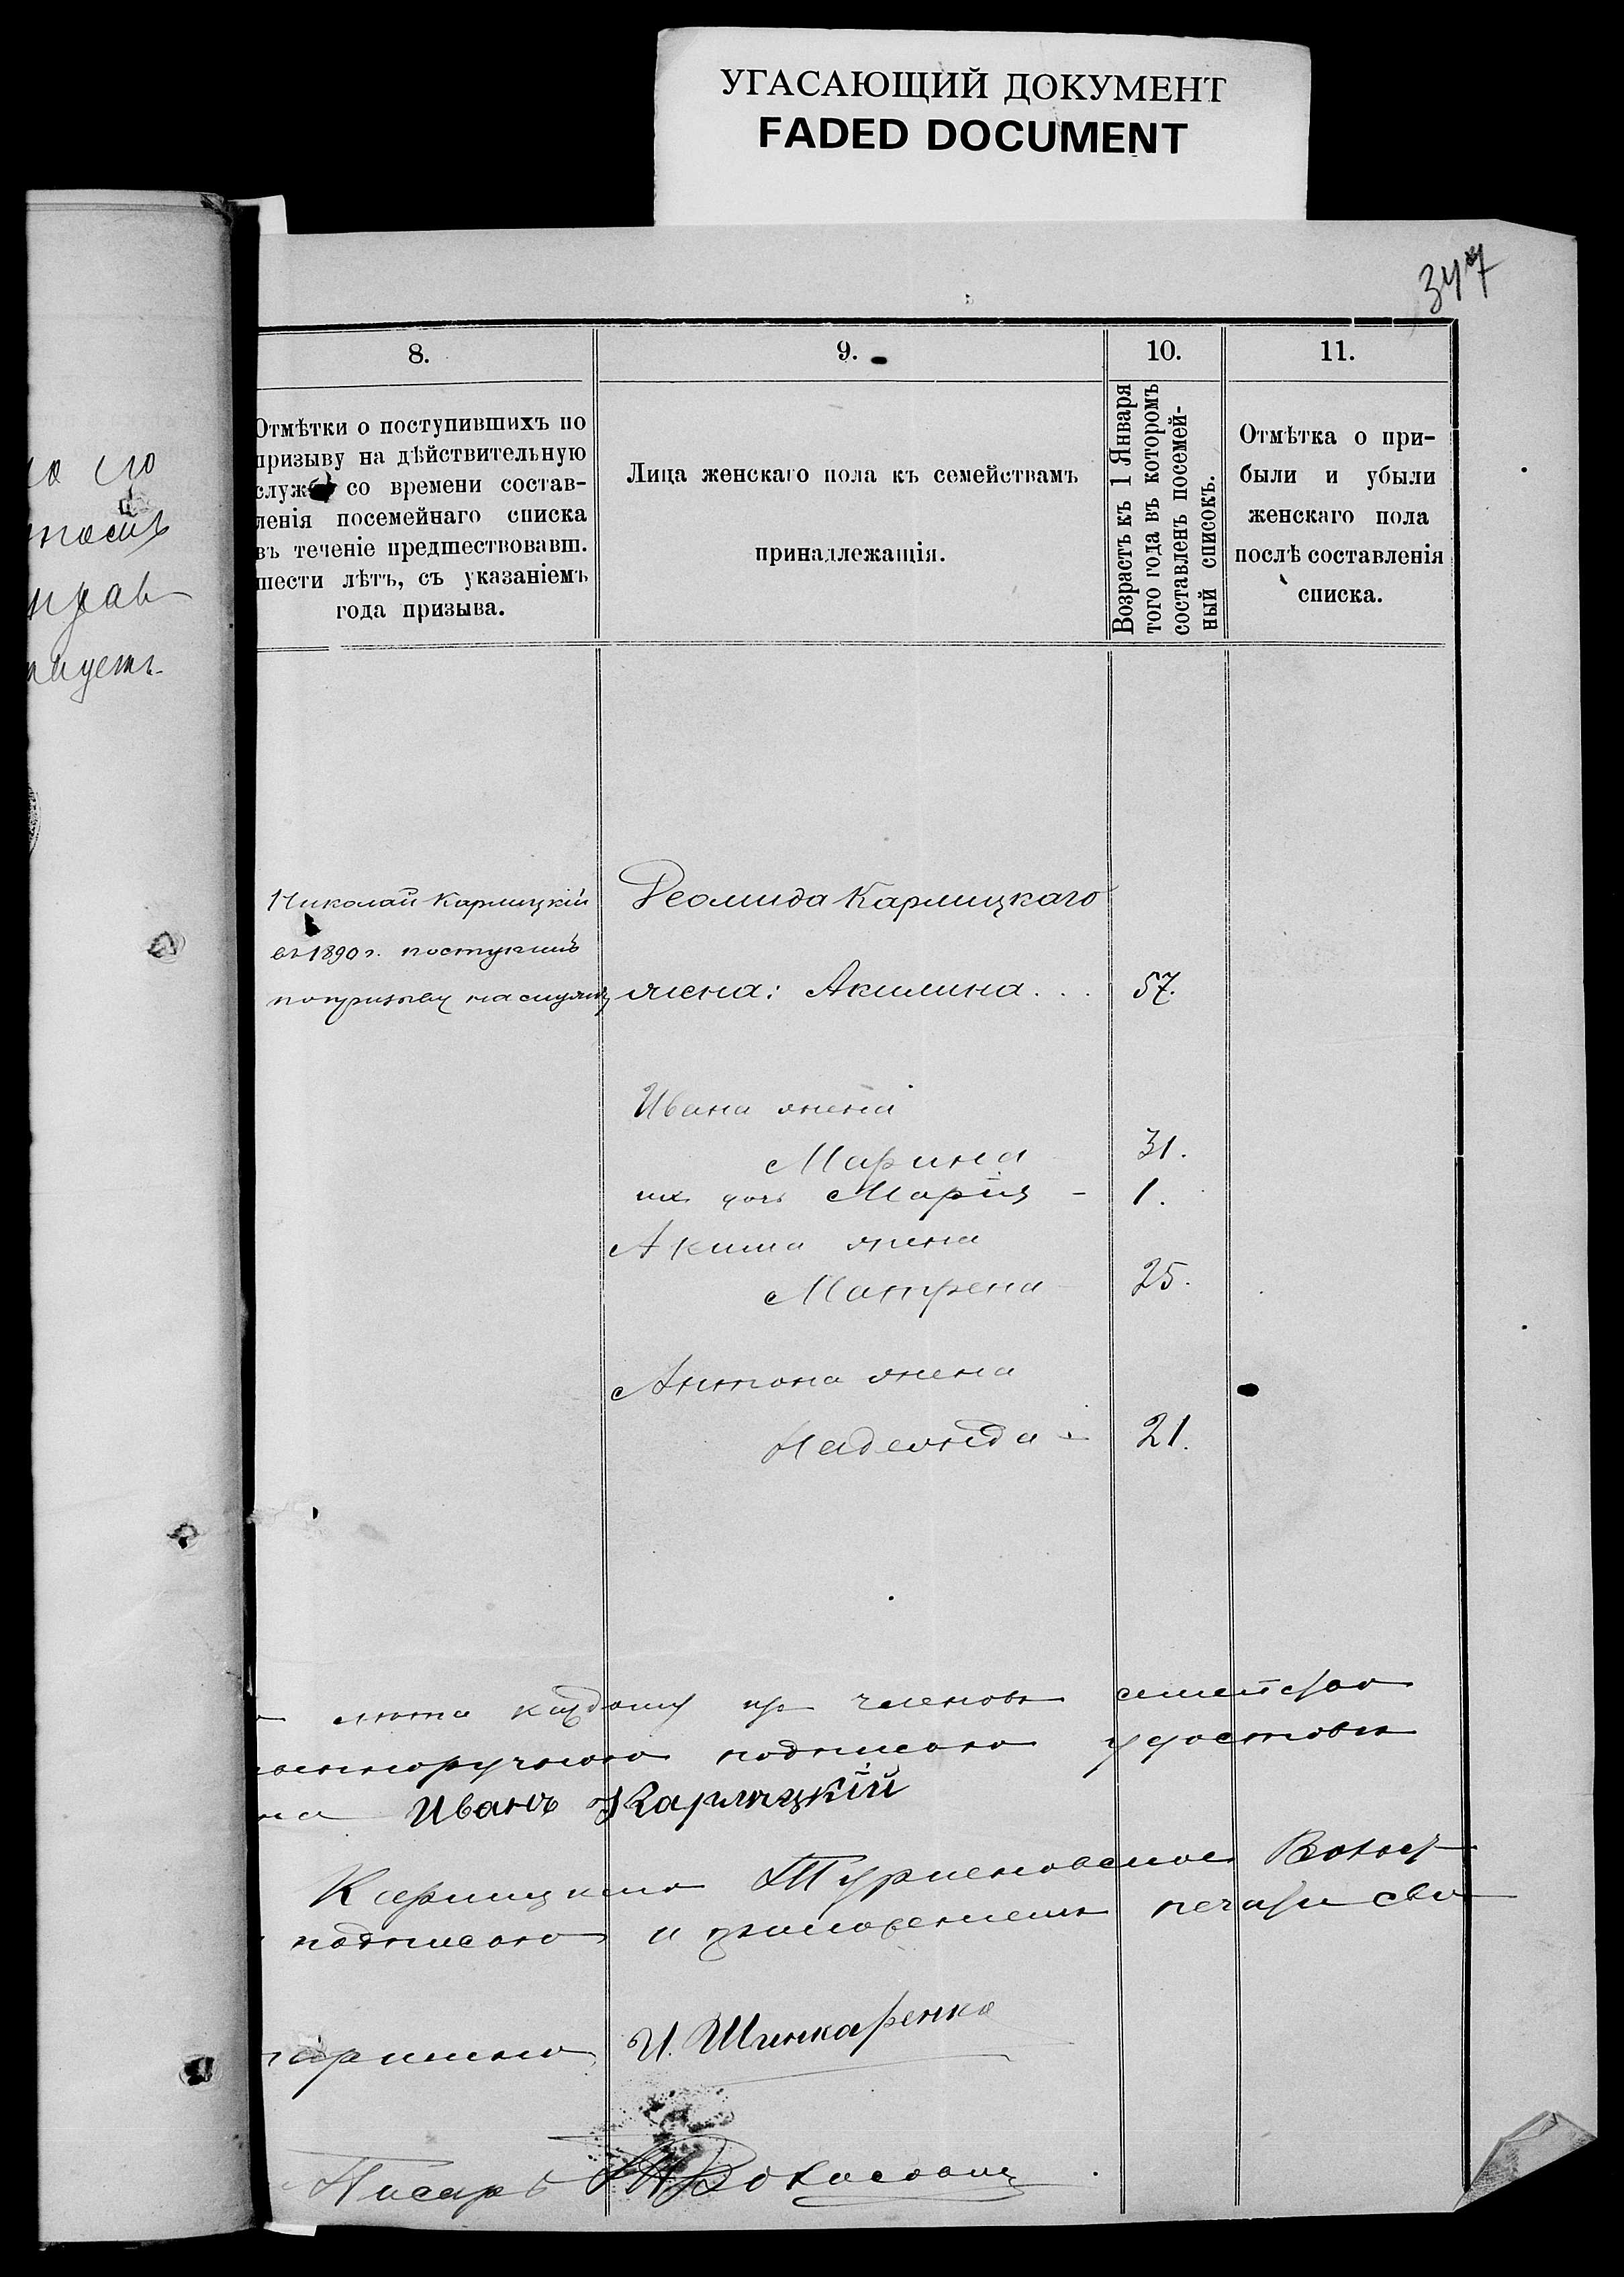 УГАСАЮЩИЙ ДОКУМЕНТ
FADED DOCUMENT
347
8.
9.
10.
11.
Отмѣтки о поступившихъ по
призыву на дѣйствительную
службу со времени состав-
ленія посемейнаго списка
въ теченіе предшествовавш.
шести лѣтъ, съ указаніемъ
года призыва.
Лица женскаго пола къ семействамъ
принадлежащія.
Возрастъ къ 1 Января
того года въ которомъ
составленъ посемей-
ный списокъ.
Отмѣтка о при-
были и убыли
женскаго пола
послѣ составленія
списка.
Николай Карлицкій
въ 1890 г. поступилъ
по призыву на службу
Деомида Карлицкаго
жена: Акилина . . . 57.
Ивана жена
Марина 31.
их дочь Марія - 1.
Акима жена
Матрена 25.
Антона жена
Надежда - 21.
лѣта каждому изъ членовъ семейства
подписью удостовѣ
на Иванъ Карлицкій
Карлицкаго Волост
подписью и приложеніемъ печати сво
И. Шинкаренко
Писарь